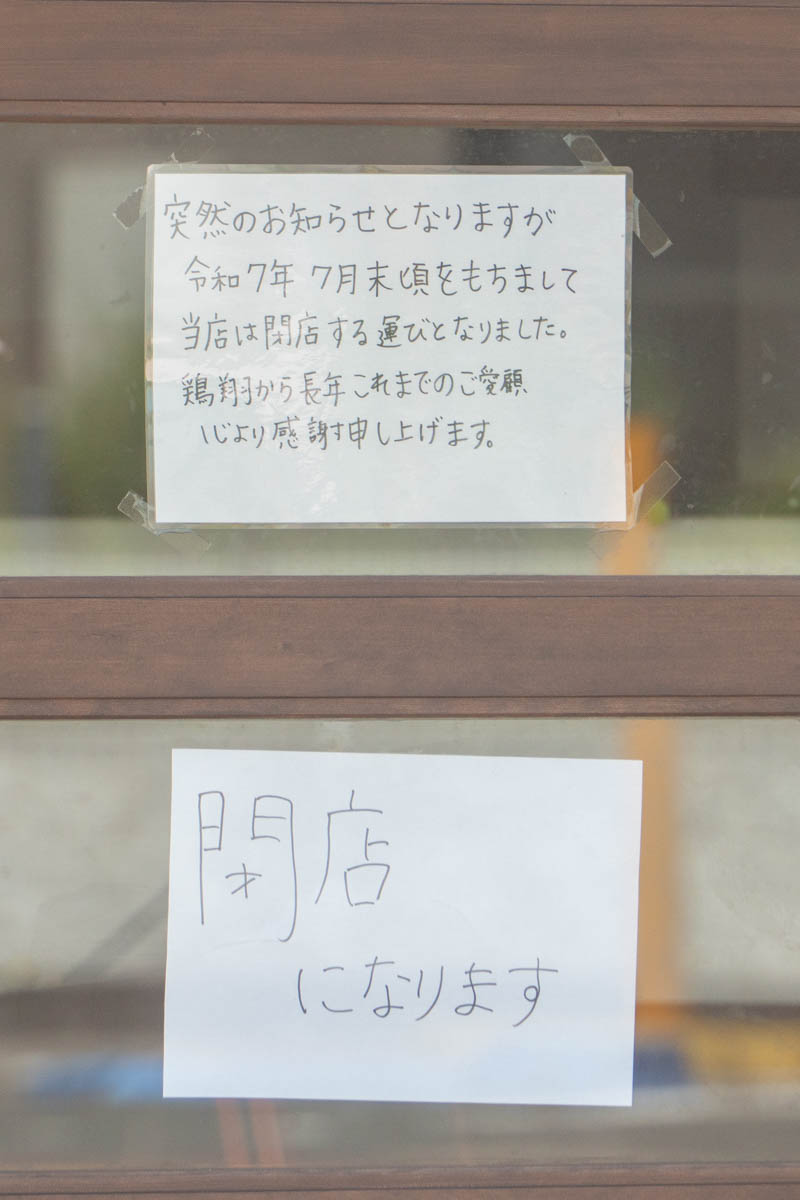 突然のお知らせとなりますが
令和7年 7月末頃をもちまして
当店は閉店する運びとなりました。
鶏翔から長年これまでのご愛顧
心より感謝申し上げます。
閉店
になります